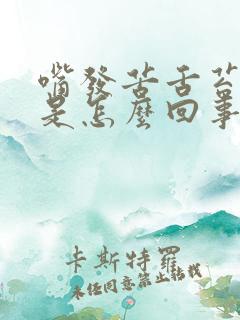 嘴發苦舌苔
是怎麼回事
卡斯特羅
未經同意禁止轉載